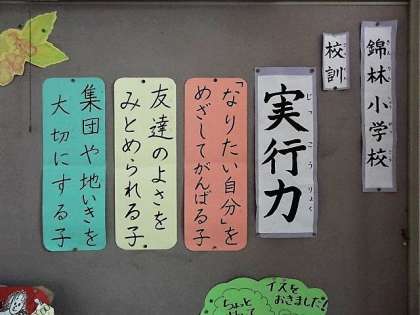 錦林小学校
きんりんしょうがっこう
校訓
こうくん
実行力
じっこうりょく
「なりたい自分」を
めざしてがんばる子
友達のよさを
みとめられる子
集団や地いきを
大切にする子
イスを
おきました!
ちょっと